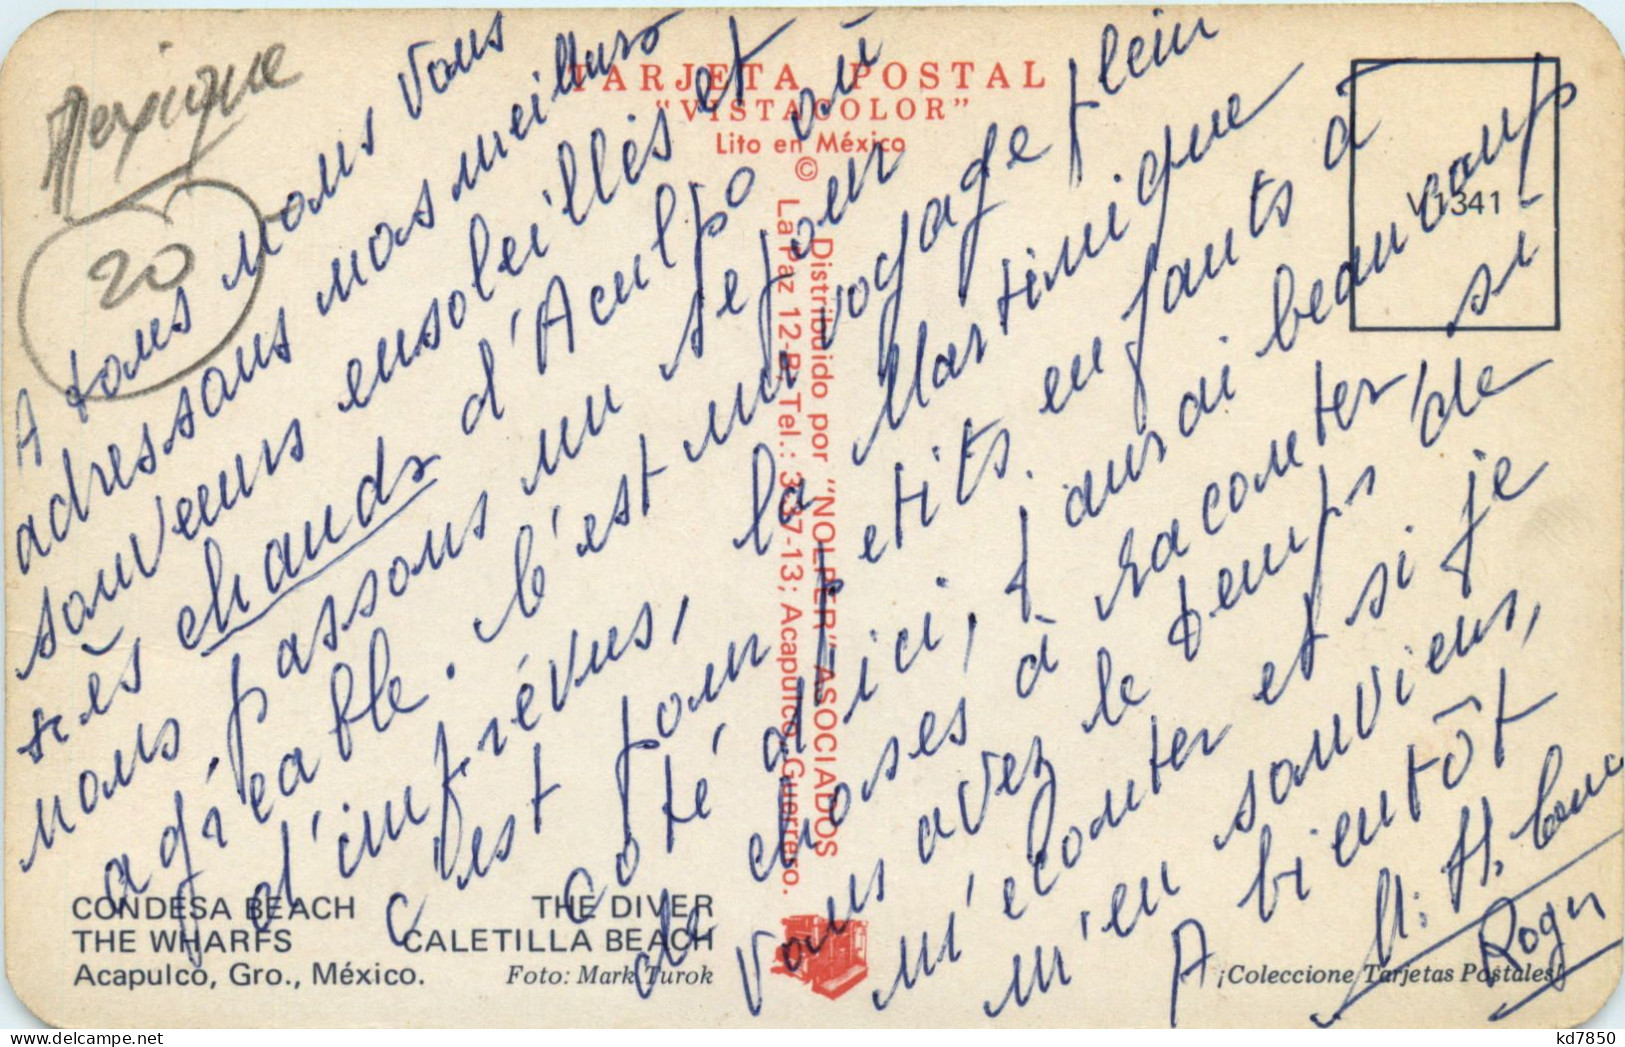 Mexique
20
TARJETA POSTAL
"VISTACOLOR"
Lito en México
V1341
© Distribuido por "NOLPER" ASOCIADOS
La Paz 12-B; Tel.: 3-37-13; Acapulco, Guerrero.
A tous nous vous
adressons nos meilleurs
souvenirs ensoleillés et
très chauds d'Aculpo où
nous passons un sejour
agréable. C'est un voyage plein
d'imprévus,
c'est pour la Martinique
côté petits. enfants à
de d'ici, J'aurai beaucoup
choses à raconter si
Vous avez le temps de
m'écouter et si je
m'en souviens,
A bientôt
M. H.
Roger
CONDESA BEACH THE DIVER
THE WHARFS CALETILLA BEACH
Acapulco, Gro., México. Foto: Mark Turok
¡Coleccione Tarjetas Postales!
kd7850